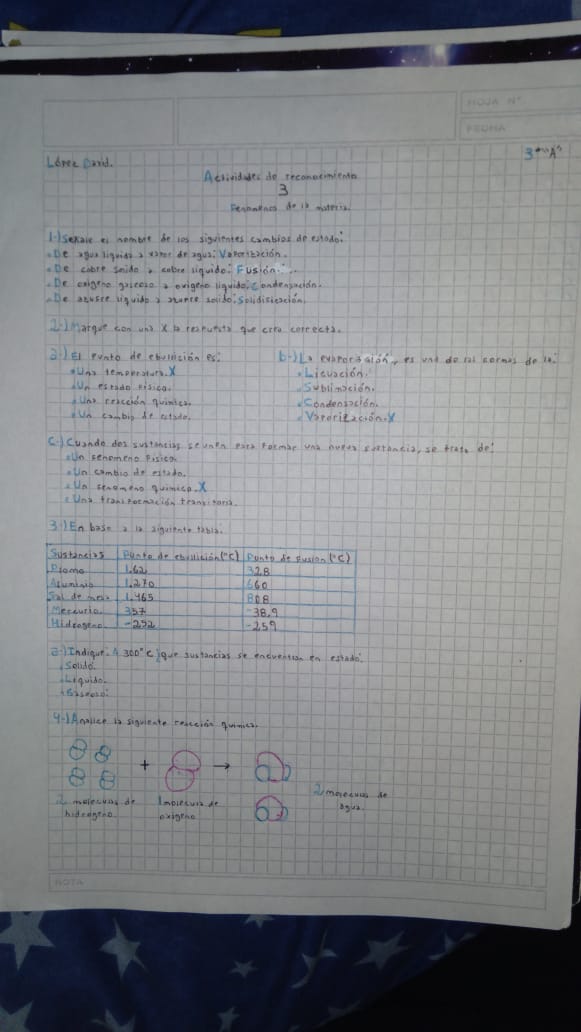 HOJA N°
FECHA
3ero "A"
López David.
Actividades de reconocimiento
3
Fenomenos de la materia.
1-) Señale el nombre de los siguientes cambios de estado:
De agua liquida a vapor de agua: Vaporización.
De cobre solido a cobre liquido: Fusión.
De oxigeno gaseoso a oxigeno liquido: Condensación.
De azufre liquido a azufre solido: Solidificación.
2-) Marque con una X la respuesta que crea correcta.
a-) El Punto de ebullición es:
Una temperatura. X
Un estado Fisico.
Una reacción quimica.
Un cambio de estado.
b-) La evaporación, es una de las formas de la:
Licuación.
Sublimación.
Condensación.
Vaporización. X
C-) Cuando dos sustancias se unen para Formar una nueva sustancia, se trata de:
Un Fenomeno Fisico.
Un cambio de estado.
Un Fenomeno quimico. X
Una transformación transitoria.
3-) En base a la siguiente tabla:
Sustancias Punto de ebullición(°C) Punto de Fusión (°C)
Plomo 1.62 328
Aluminio 1.270 660
Sal de mesa 1.465 808
Mercurio 357 -38,9
Hidrogeno. -252 -259
a-) Indique: A 300°C ¿que sustancias se encuentran en estado:
Solido:
Liquido:
Gaseoso:
4-) Analice la siguiente reacción quimica.
+ →
2 moleculas de hidrogeno.
1 molecula de oxigeno
2 moleculas de agua.
NOTA